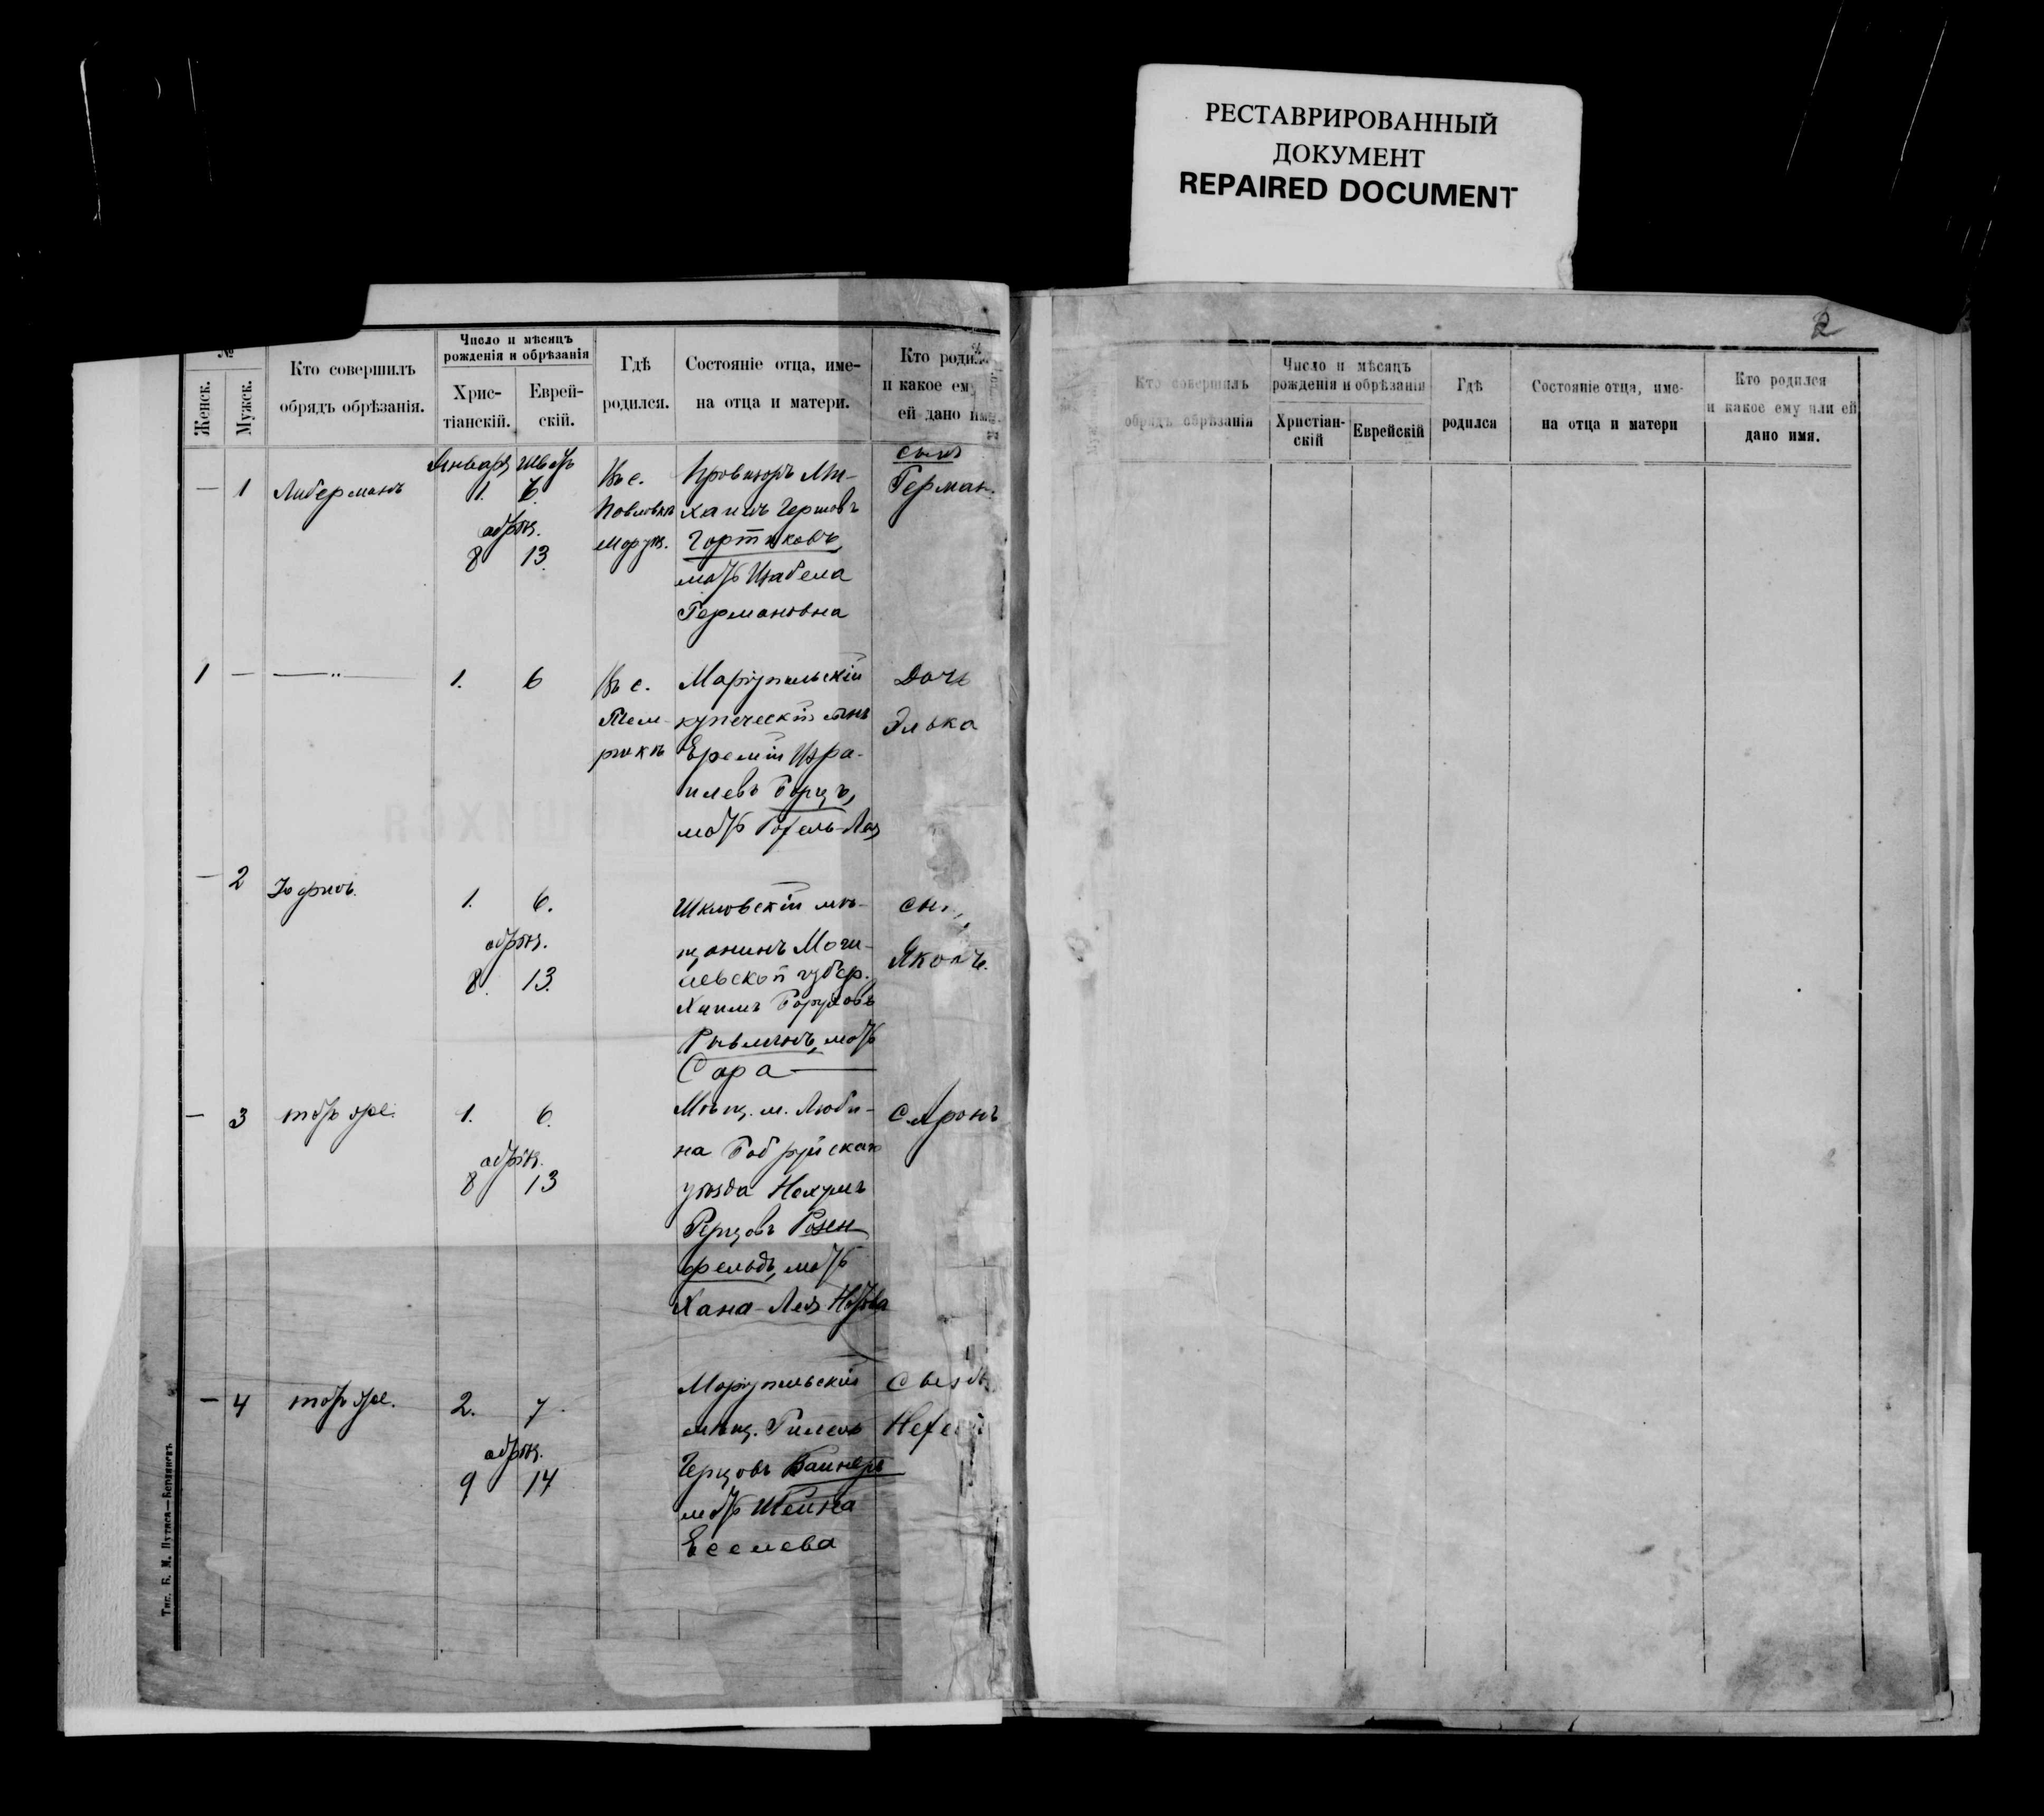 РЕСТАВРИРОВАННЫЙ
ДОКУМЕНТ
REPAIRED DOCUMENT
2
№
Женск.
Мужск.
Кто совершилъ
обрядъ обрѣзанія.
Число и мѣсяцъ
рожденія и обрѣзанія
Хрис-
тіанскій.
Еврей-
скій.
Гдѣ
родился.
Состояніе отца, име-
на отца и матери.
Кто родил
и какое ему
ей дано имя.
— 1 Либерманъ
Январь
1. 6.
обрѣз.
8 13.
Въ с.
Павловкѣ
Провизоръ Ми-
хаилъ Гершовъ
Гортиковъ,
мать Изабела
Германовна
сынъ
Герман.
1 — — „ — 1. 6
Въ с.
Тем-
рюкѣ
Маріупольскій
купеческій сынъ
Еремій Изра-
илевъ Борцъ,
мать Рохель-Лея
Дочь
Элька
— 2 Юдринъ. 1. 6.
обрѣз.
8. 13.
Шкловскій мѣ-
щанинъ Моги-
левской губер.
Хаимъ Боруховъ
Ривлинъ, мать
Сара
сын
Яковъ.
— 3 тотъ же. 1. 6.
обрѣз.
8 13
Мѣщ. м. Люби-
на Бобруйскаго
уѣзда Нахумъ
Герцовъ Розен
фельдъ, мать
Хана-Лея
с. Аронъ
— 4 тотъ же. 2. 7.
обрѣз.
9 14
Маріупольскій
мѣщ. Гилель
Герцовъ Вайнеръ
мать Шейна
Еселева
Тип. Б. М. Бердянскъ.
Кто совершилъ
обрядъ обрѣзанія
Число и мѣсяцъ
рожденія и обрѣзанія
Христіан-
скій
Еврейскій
Гдѣ
родился
Состояніе отца, име-
на отца и матери
Кто родился
и какое ему или ей
дано имя.